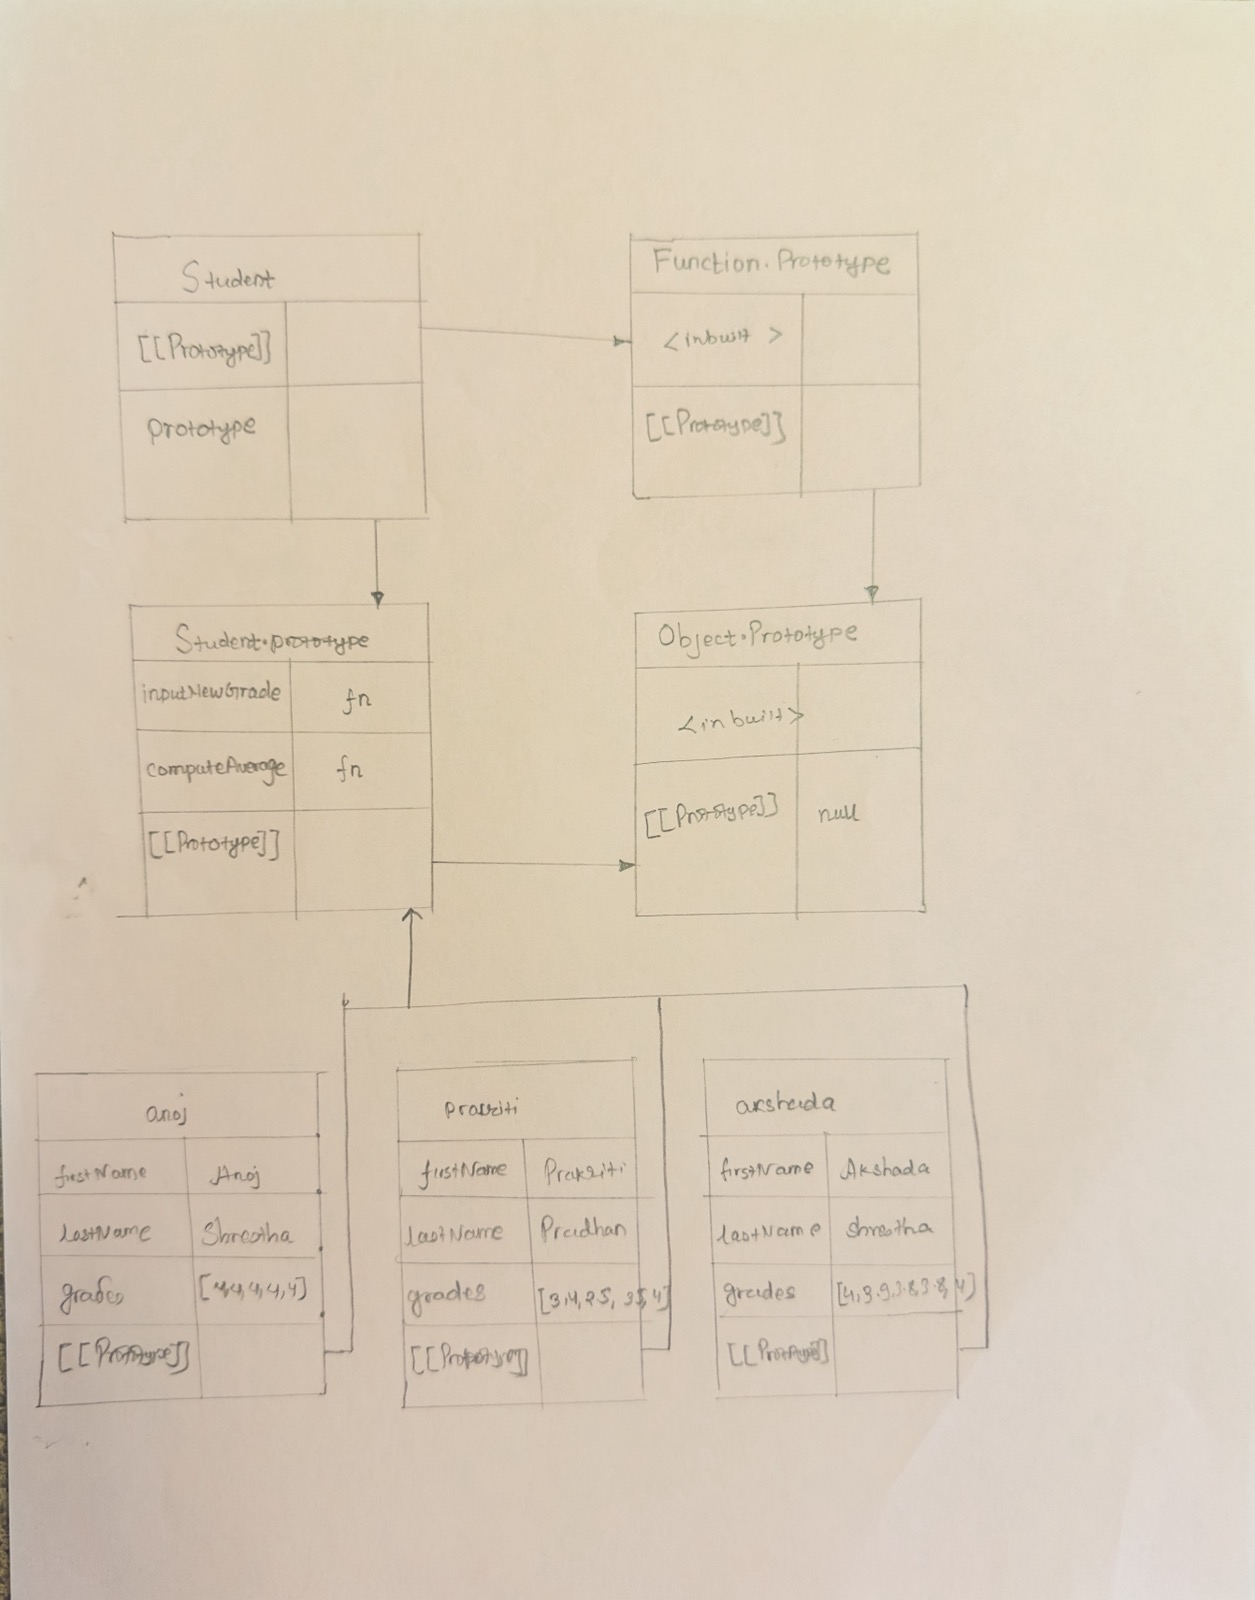 Student
[[Prototype]]
prototype
Function.Prototype
<inbuilt>
[[Prototype]]
Student.prototype
inputNewGrade fn
computeAverage fn
[[Prototype]]
Object.Prototype
<inbuilt>
[[Prototype]] null
anoj
firstName Anoj
lastName Shrestha
grades [4,4,4,4,4]
[[Prototype]]
prakriti
firstName Prakriti
lastName Pradhan
grades [3,4,
[[Prototype]]
akshada
firstName Akshada
lastName shrestha
grades [4,3.9,3.8,3.8,4]
[[Prototype]]